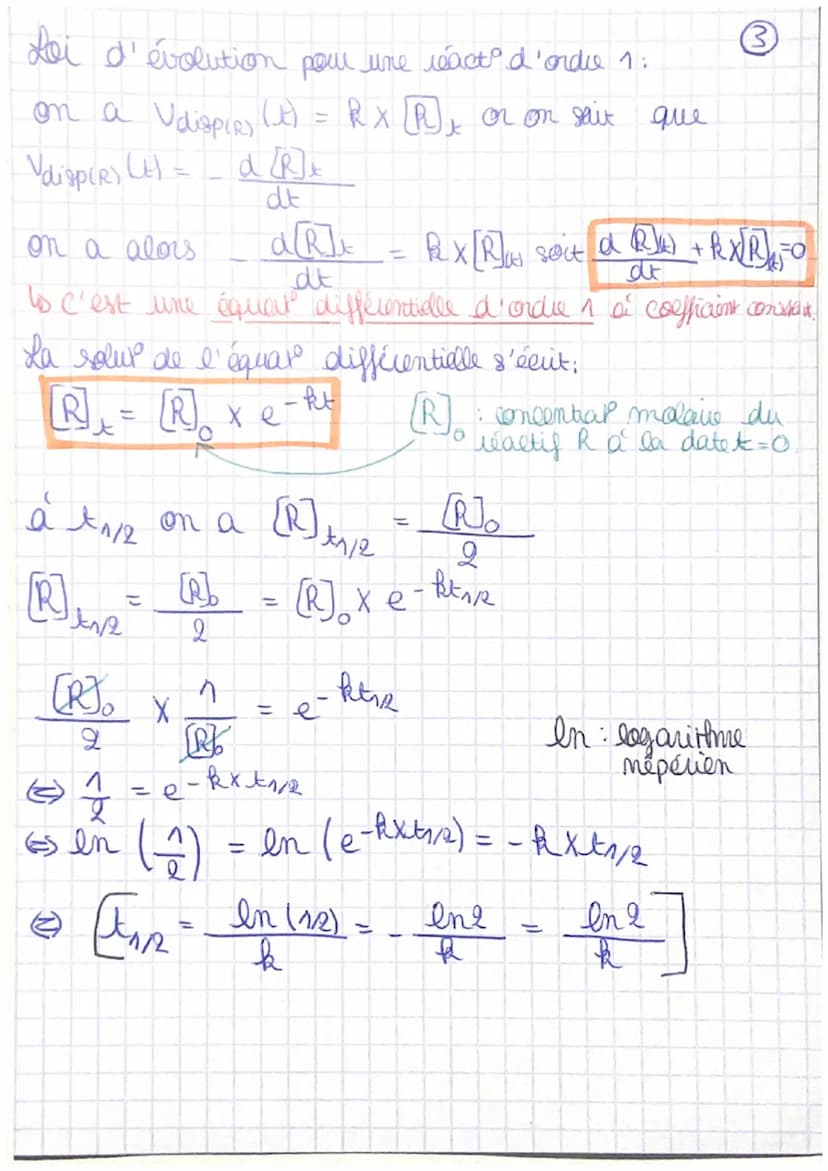 ③
Loi d'évolution pour une réact° d'ordre 1 :
on a Vdisp(R) (t) = k x [R]t or on sait que
Vdisp(R) (t) = - d[R]t / dt
on a alors - d[R]t / dt = k x [R](t) soit d[R](t) / dt + k x [R](t) = 0
↳ c'est une équat° différentielle d'ordre 1 à coefficient constant.
La solut° de l'équat° différentielle s'écrit :
[R]t = [R]0 x e^-kt
[R]0 : concentrat° molaire du
réactif R à la date t=0
à t1/2 on a [R]t1/2 = [R]0 / 2
[R]t1/2 = [R]0 / 2 = [R]0 x e^-kt1/2
[R]0 / 2 x 1 / [R]0 = e^-kt1/2
ln : logarithme
népérien
⇔ 1/2 = e^-k x t1/2
⇔ ln (1/2) = ln (e^-k x t1/2) = - k x t1/2
⇔ [t1/2 = ln (1/2) / k = - ln2 / k = ln2 / k]